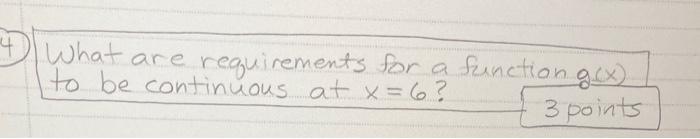 4) What are requirements for a function g(x)
to be continuous at x=6?
3 points